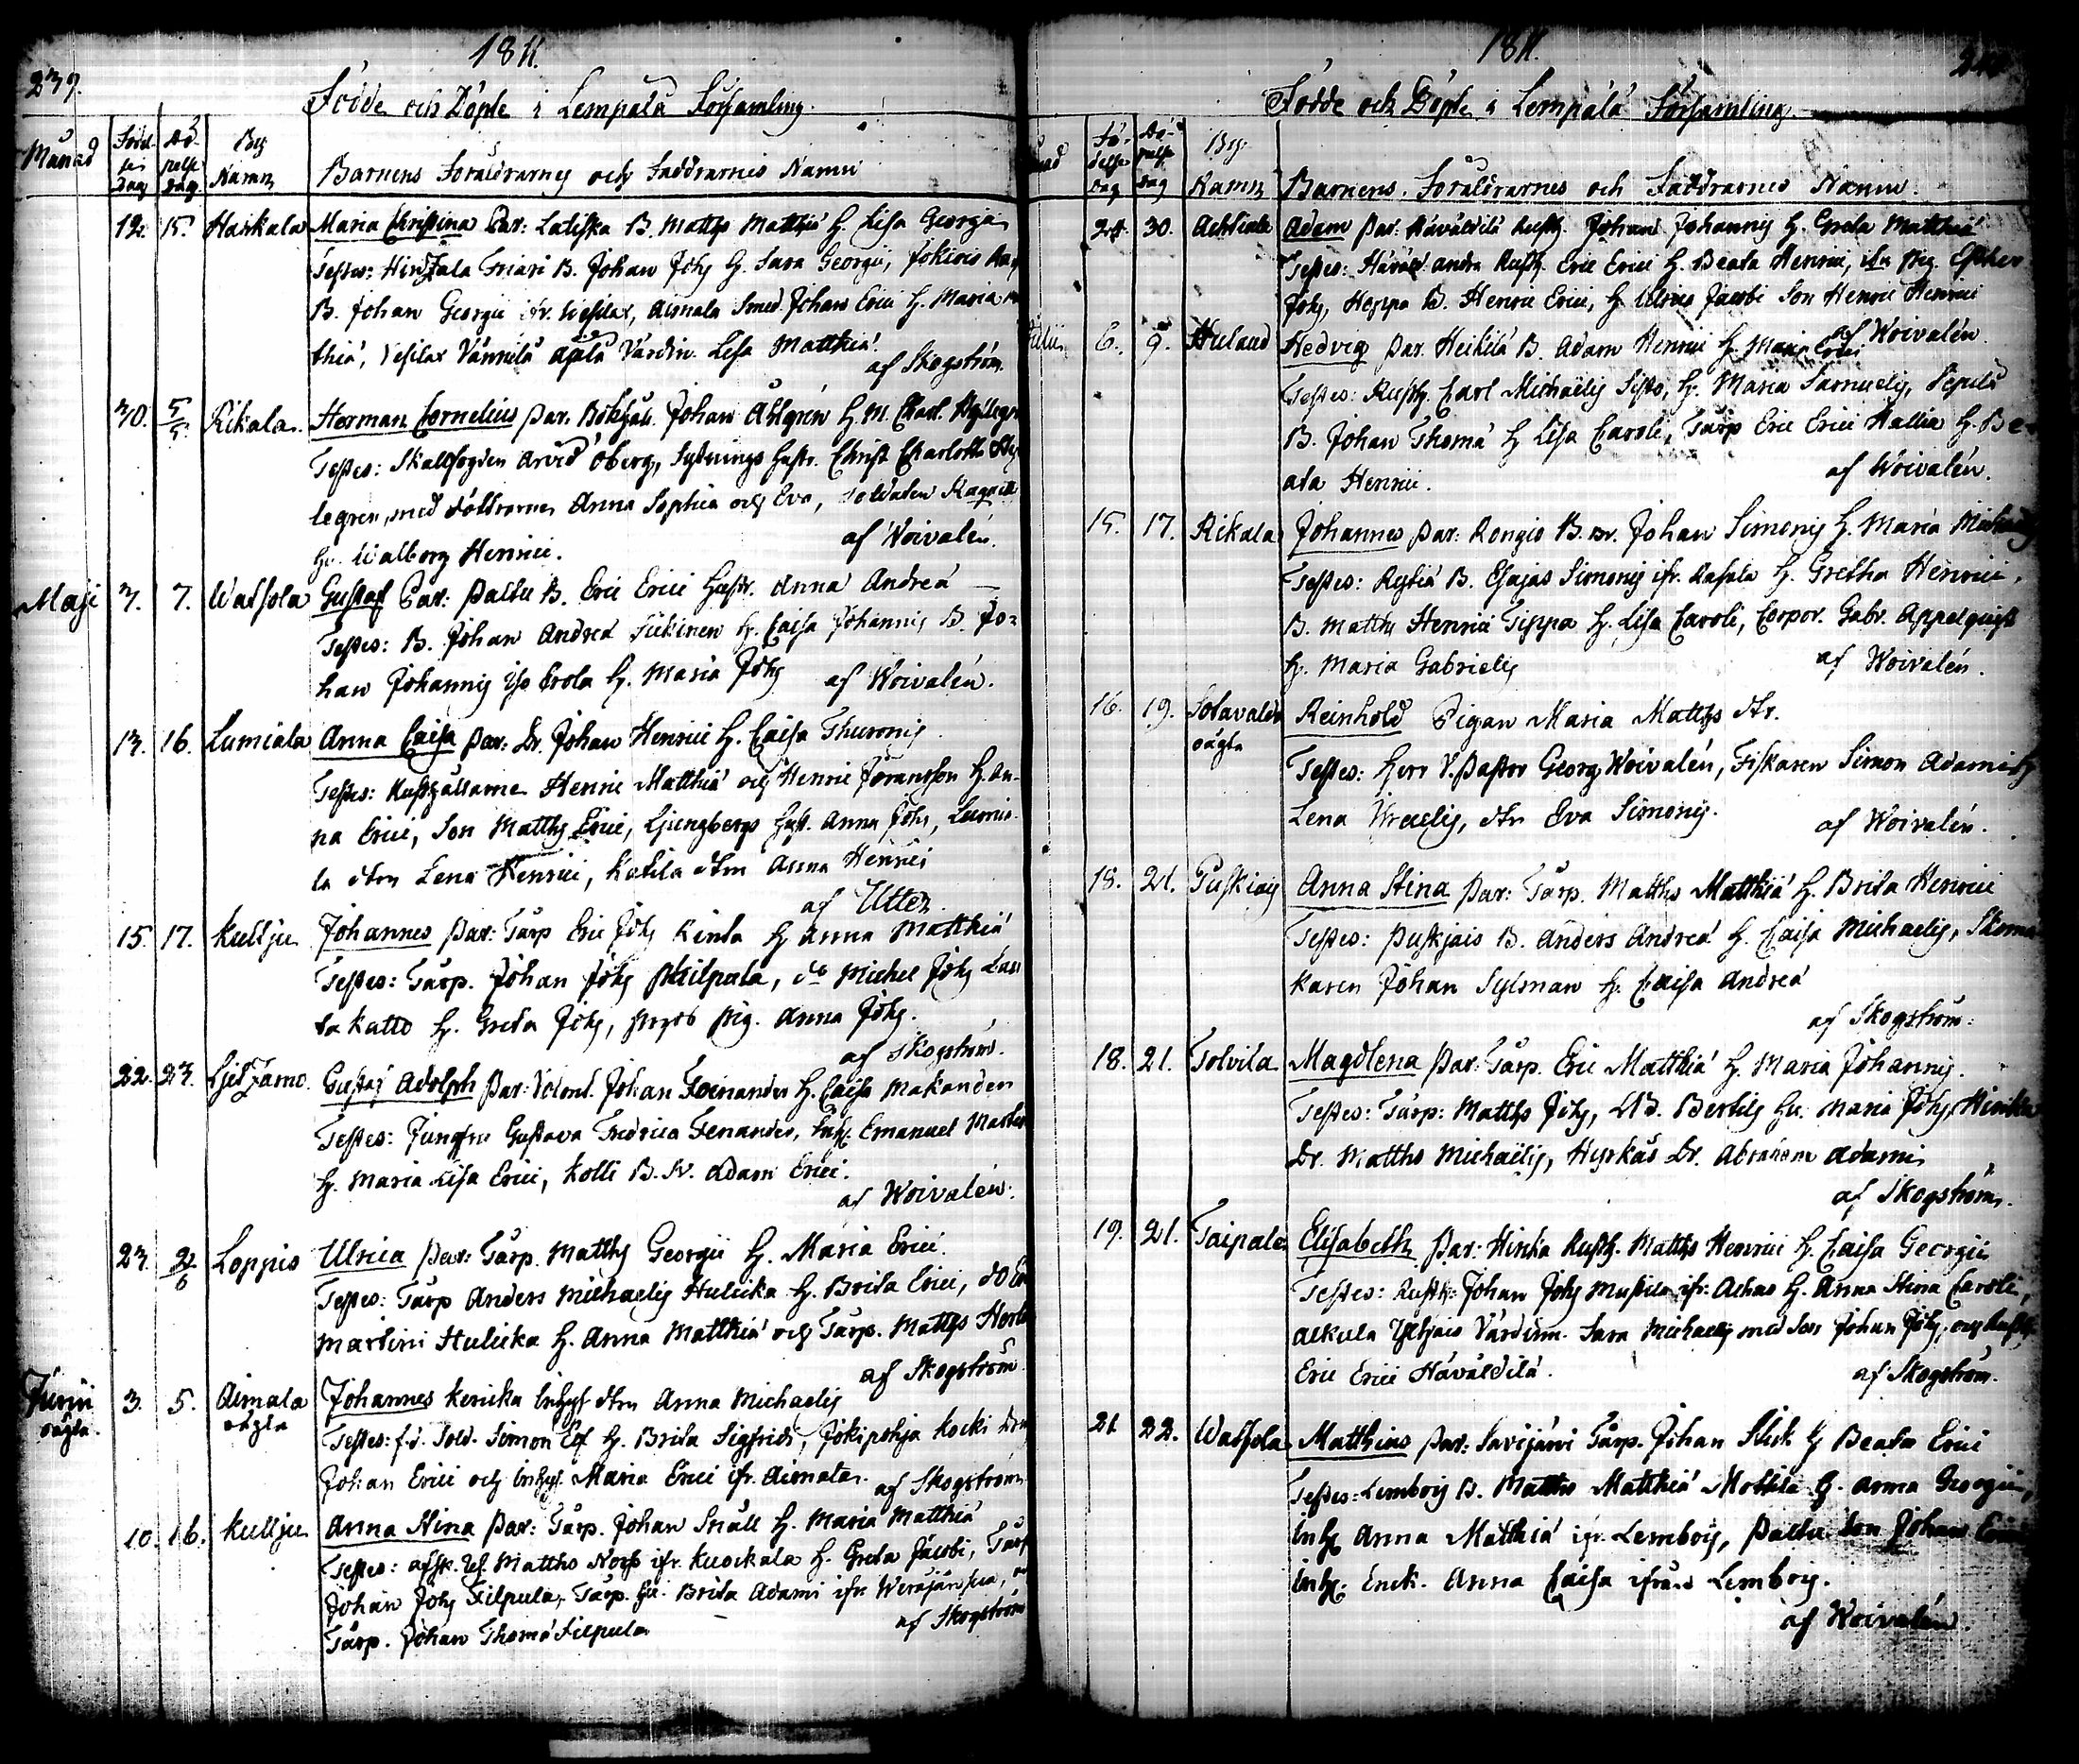 239.
1811.
Födde och Döpte i Lempälä Församling.
Månad
Födel-
se
Dag
Dö-
pelse
Dag
By
Namn
Barnens Föräldrarnes och Faddrarnes Namn
12. 15. Haikala Maria Christina Par: Latiska B. Matths Matthiæ H. Lisa Georgii
Testes: Johan Johs H. Sara Georgii,
B. Johan Georgii ifr. Vesilax, Aimala Smed. Johan Erici H. Maria
thiæ, Vesilax Vännilä Värdin. Lisa Matthiæ.
af Skogström.
30. 5/5. Rikala Herman Cornelius Par. Bokhåll. Johan Ahlgrén H. M. Charl.
Testes: Skallfogden Arvid Öberg, Hustr. Christ. Charlotta
legren, med döttrarne Anna Sophia och Eva, Soldaten
Hu. Walborg Henrici.
af Woivalén.
Maji 3. 7. Watsola Gustaf Par: Paltu B. Eric Erici Hustr. Anna Andreæ
Testes: B. Johan Andreæ H. Caisa Johannis B. Jo-
han Johannis Yli Erola H. Maria Johs
af Woivalén.
13. 16. Lumiala Anna Caisa Par: Dr. Johan Henrici H. Caisa Thuronis
Testes: Rusthållarne Henric Matthiæ och Henric Jöransson H. An-
na Erici, Son Matths Erici, Ljungbergs Hust. Anna Johs, Lumia-
la dtrn Lena Henrici, Katila dtrn Anna Henrici
af Utter.
15. 17. Kullju Johannes Par: Tarp Eric Johs Rinta H Anna Matthiæ
Testes: Tarp. Johan Johs Kilpala, do Michel Johs
ta katto H. Greta Johs, pig. Anna Johs.
af Skogström.
22. 23. Gustaf Adolph Par: Volont. Johan Fernander H. Caisa Makander
Testes: Jungfru Gustava Fredrica Fenander, Inh. Emanuel
H. Maria Lisa Erici, Kolli B. Sr. Adam Erici.
af Woivalén.
23. 2/6 Loppis Ulrica Par: Tarp. Matths Georgii H. Maria Erici.
Testes: Tarp Anders Michaelis Hulicka H. Brita Erici, do
Martini Hulicka H. Anna Matthiæ och Tarp. Matths
af Skogström
Junii
oägta.
3. 5. Aimala
oägta
Johannes Kericka Inhys dtrn Anna Michaelis
Testes: f.d. Sold. Simon H. Brita Sigfrids, Jokipohja Kocki
Johan Erici och Inhys. Maria Erici ifr. Aimala.
af Skogström
10. 16. Kullju Anna Stina Par: Tarp. Johan Snäll H. Maria Matthiæ
Testes: afsk. Matths ifr. Kuockala H. Greta Jacobi, Tarp
Johan Johs Filpula, Tarp. Hu. Brita Adami ifr.
Tarp. Johan Thomæ Filpula
af Skogström
1811.
Födde och Döpte i Lempälä Församling
Fö-
delse
Dag
Dö-
pelse
Dag
By
Namn
Barnens Föräldrarnes och Faddrarnes Namn.
24. 30. Achtiala Adam Par: Häväldilä Rusth. Johan Johannis H. Greta Matthiæ
Testes: andra Rusth. Eric Erici H. Beata Henrici, Pig. Esther
Johs, Hoppa B. Henric Erici, H. Ulrica Jacobi Son Henric Henrici
af Woivalén.
Julii 6. 9. Hulaud Hedvig Par. Heikilä B. Adam Henrici H. Maria Erici
Testes: Rusth. Carl Michaelis H. Maria Samuelis,
B. Johan Thomæ H Lisa Caroli, Tarp Eric Erici Hallia H. Be-
ata Henrici.
af Woivalén.
15. 17. Rikala Johannes Par: Rongio B. Br. Johan Simonis H. Maria
Testes: B. Esajas Simonis ifr. H. Gretha Henrici,
B. Matths Henrici H. Lisa Caroli, Corpor. Gabr. Appelquist
H. Maria Gabrielis
af Woivalén.
16. 19. Sotavalda
oägta
Reinhold Pigan Maria Matths dtr.
Testes: Herr V. Pastor Georg Woivalén, Fiskaren Simon Adami H
Lena Israelis, dtr Eva Simonis.
af Woivalén.
18. 21. Anna Stina Par: Tarp. Matths Matthiæ H. Brita Henrici
Testes: B. Anders Andreæ H. Caisa Michaelis, Skoma-
karen Johan Sylman H. Caisa Andreæ
af Skogström.
18. 21. Tolvila Magdlena Par: Tarp. Eric Matthiæ H. Maria Johannis.
Testes: Tarp: Matths Johs, Bertils Hu. Maria Johs,
Dr. Matths Michaelis, Hyrkäs Dr. Abraham Adami
af Skogström.
19. 21. Taipale Elisabeth Par: Hircka Rusth. Matths Henrici H. Caisa Georgii
Testes: Rusth. Johan Johs Mustila ifr. Achas H. Anna Stina Caroli,
Alkula Yltjais Värdinn. Sara Michaelis med Son Johan Johs, och Rusth.
Eric Erici Häväldilä.
af Skogström.
21 22. Watsola Matthias Par: Savijärvi Tarp. Johan Slick H Beata Erici
Testes: Lembois B. Matths Matthiæ Mottila H. Anna Georgii,
Inh. Anna Matthiæ ifr. Lembois, Paltu Son Johan
Inh. Enck. Anna Caisa ifrån Lembois.
af Woivalén.